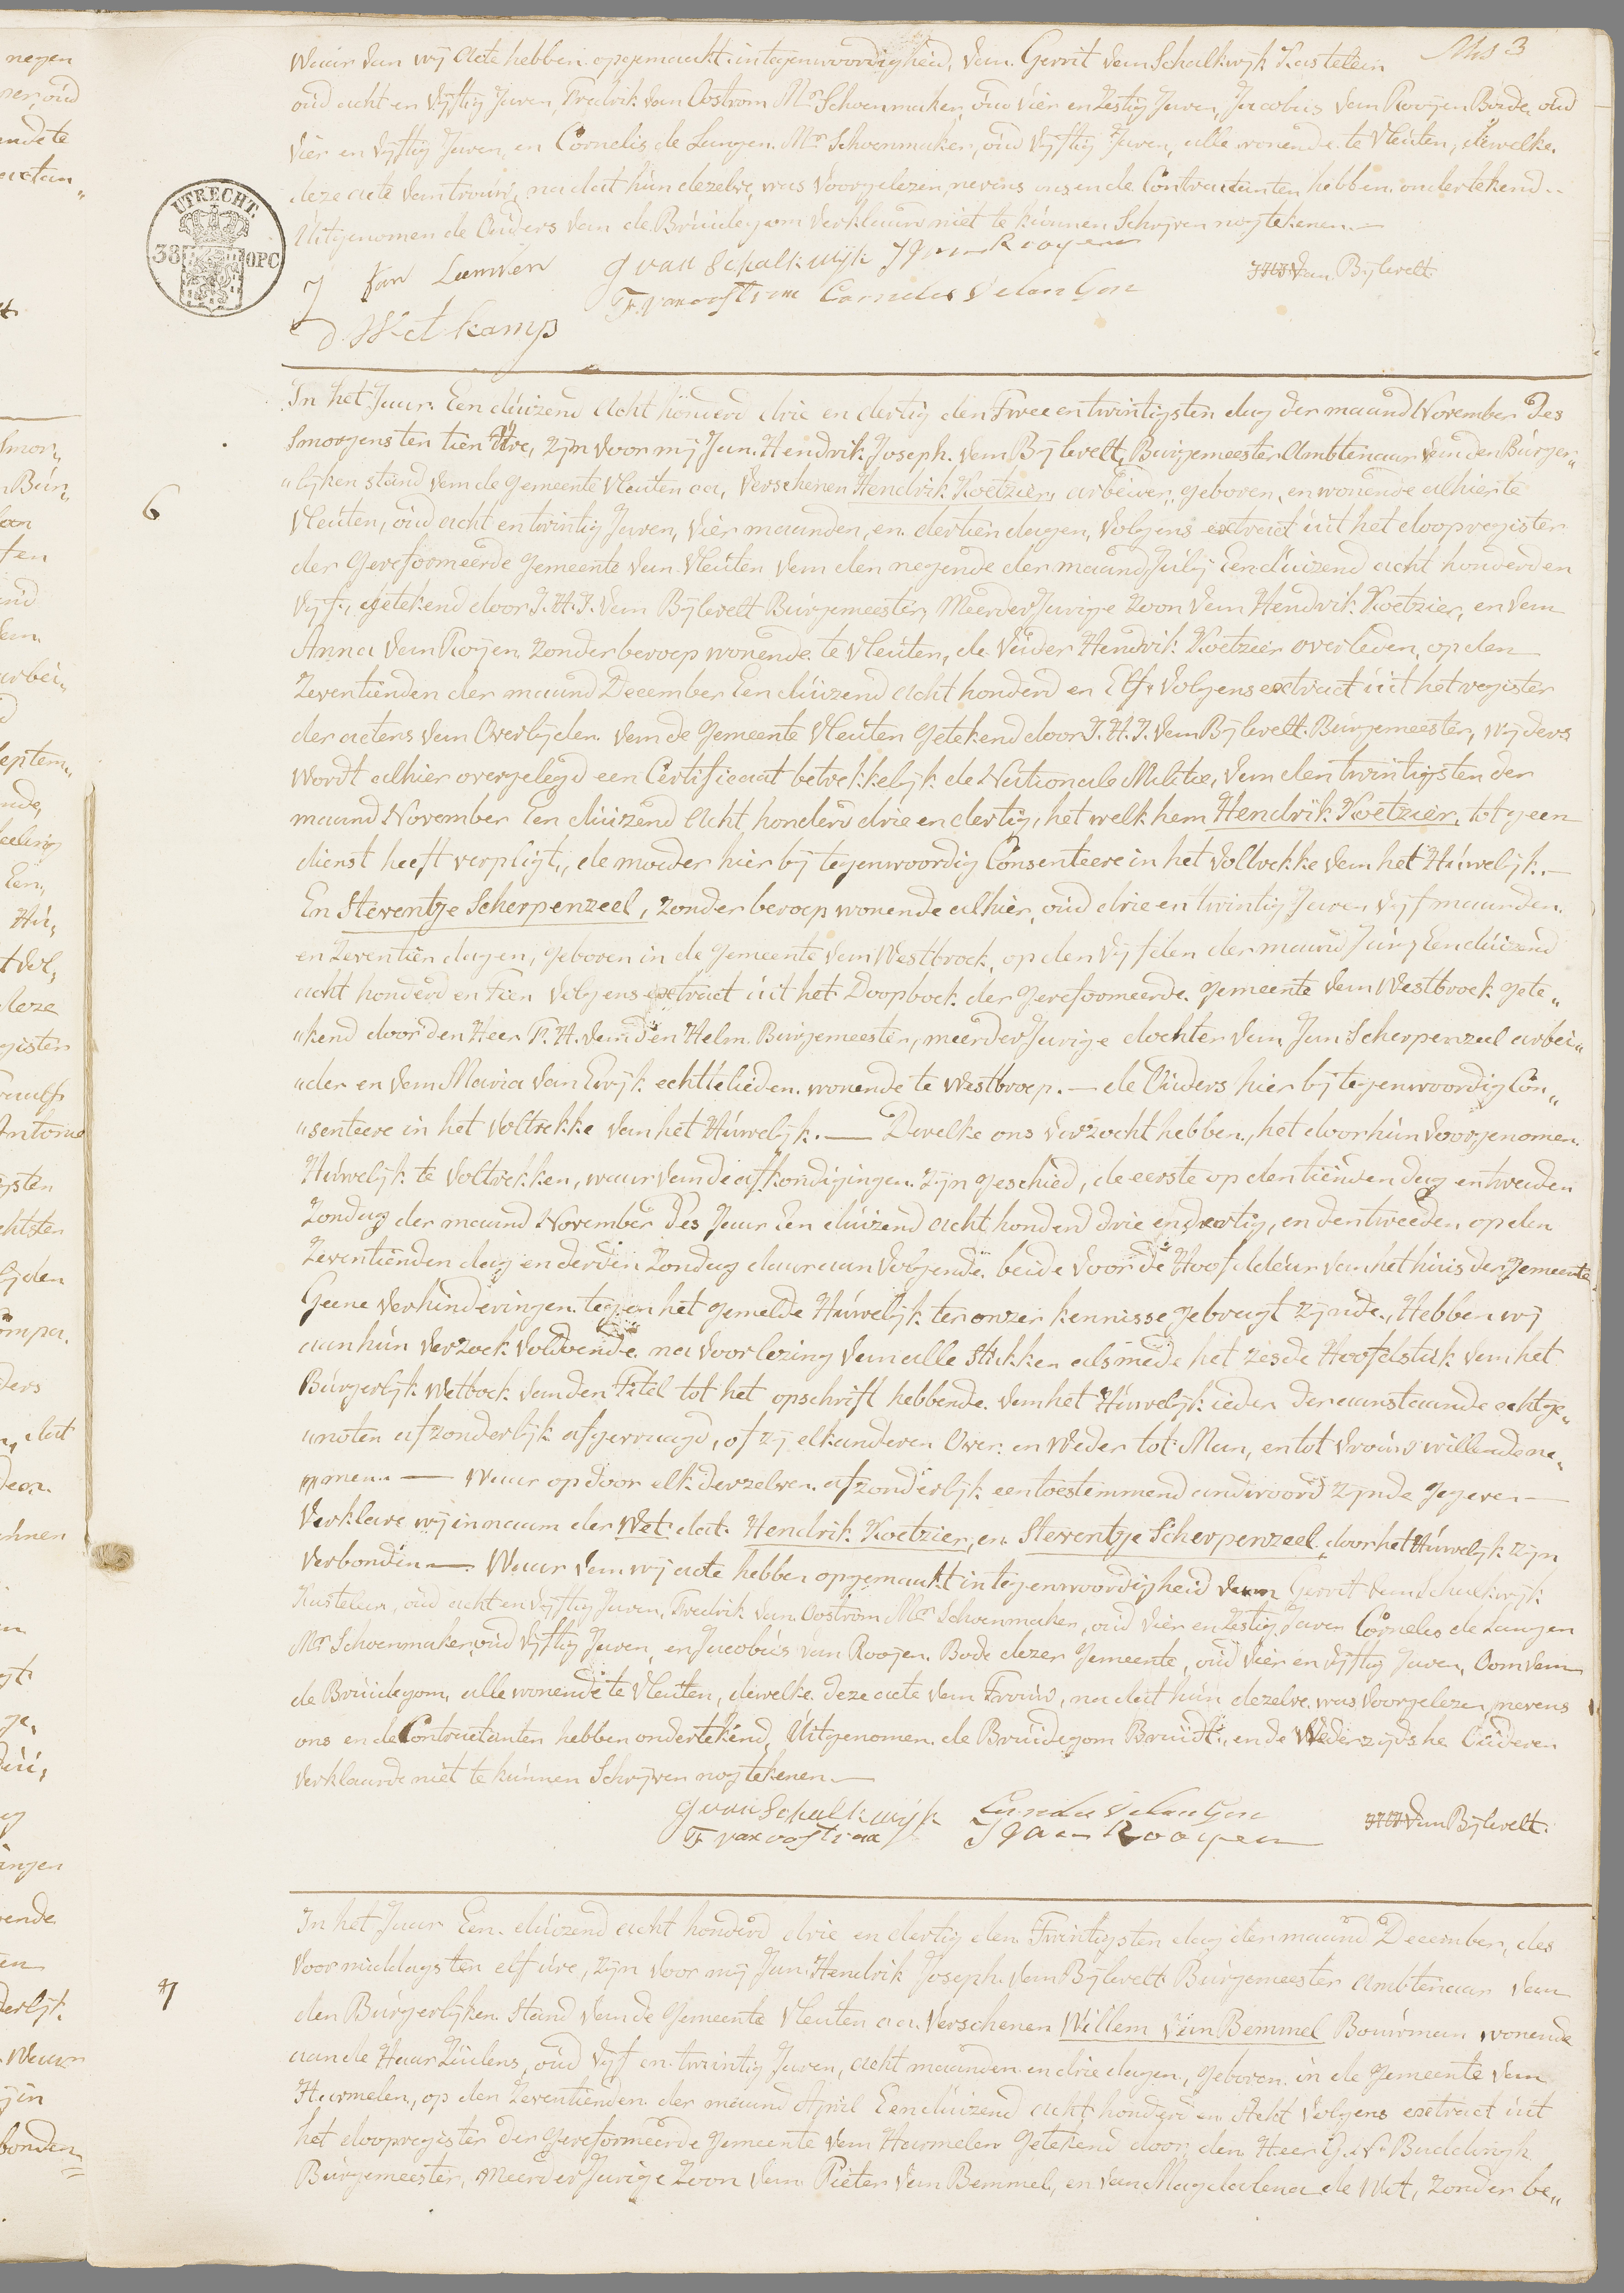 Blls 3
waar van wij acte hebben opgemaakt in tegenwoordigheid, van Gerrit van Schalkwijk Kastelein
oud acht en vijftig Jaren, Fredrik van Oostrom Mr Schoenmaker, oud vier en Zestig Jaren, Jacobus van Rooijen Bode, oud
vier en vijftig Jaren, en Cornelis de Langen Mr Schoenmaker, oud vijftig Jaren, alle wonende te Vleuten, dewelke
deze acte van trouw, na dat hun dezelve was voorgelezen, nevens ons en de Contractanten hebben ondertekend
Uitgenomen de Ouders van de Bruidegom verklaard niet te kunnen Schrijven nog tekenen.—
UTRECHT.
38 OPC
G van Schalkwijk J van Rooyen
F. van oostrom Cornelis de lan Gen
van Bijlevelt
In het Jaar Een duizend acht honderd drie en dertig den Twee en twintigsten dag der maand November des
Smorgens ten tien Ure, zijn voor mij Jan Hendrik Joseph van Bijlevelt, Burgemeester Ambtenaar van den Burger„
6
„lijken stand van de Gemeente Vleuten ca, verschenen Hendrik Koetzier, arbeider, geboren, en wonende alhier te
Vleuten, oud acht en twintig Jaren, vier maanden, en dertien dagen, volgens extract uit het doopregister
der Gereformeerde Gemeente van Vleuten van den negende der maand Julij Een duizend acht honderd en
vijf, getekend door J. H. J. van Bijlevelt Burgemeester, MeerderJarige Zoon van Hendrik Koetzier, en van
Anna van Rojen Zonder beroep wonende te Vleuten, de Vader Hendrik Koetzier overleden, op den
Zeventienden der maand December Een duizend acht honderd en Elf volgens extract uit het register
der actens van Overlijden van de Gemeente Vleuten getekend door J. H. J. van Bijlevelt Burgemeester, wijders
Wordt alhier overgelegd een Certificaat betrekkelijk de Nationale Militie, van den twintigsten der
maand November Een duizend Acht honderd drie en dertig, het welk hem Hendrik Koetzier, tot geen
dienst heeft verpligt, de moeder hier bij tegenwoordig Consenteere in het voltrekke van het Huwelijk.—
En Steventje Scherpenzeel, Zonder beroep wonende alhier, oud drie en twintig Jaren vijf maanden
en Zeventien dagen, geboren in de gemeente van Westbroek, op den vijfden der maand Junij Een duizend
acht honderd en Tien volgens extract uit het Doopboek der gereformeerde gemeente van Westbroek gete„
„kend door den Heer P. H. van den Helm Burgemeester, meerderJarige dochter van Jan Scherpenzeel arbei„
„der en van Maria van Ewijk echtelieden wonende te Westbroep.— de Ouders hier bij tegenwoordig Con„
„senteere in het voltrekke van het Huwelijk.— Dewelke ons verzocht hebben, het door hun voorgenomen
Huwelijk te voltrekken, waar van de afkondigingen zijn geschied, de eerste op den tienden dag en tweeden
Zondag der maand November des Jaar Een duizend acht honderd drie en dertig, en den tweeden op den
Zeventienden dag en derden Zondag daaraan volgende beide voor de Hoofddeur van het huis der Gemeente
Geene verhinderingen tegen het gemelde Huwelijk ter onzer kennisse gebragt zijnde, Hebben wij
aan hun verzoek voldoende na voorlezing van alle Stukken als mede het zesde Hoofdstuk van het
Burgerlijk Wetboek van den Titel tot het opschrift hebbende van het Huwelijk ieder der aanstaande echtge„
„noten afzonderlijk afgevraagd, of zij elkanderen Over en Weder tot Man, en tot Vrouw willende ne„
men.— Waar op door elk derzelven afzonderlijk een toestemmend andwoord zijnde gegeven—
Verklare wij in naam der Wet dat Hendrik Koetzier, en Steventje Scherpenzeel door het Huwelijk zijn
verbonden— Waar van wij acte hebben opgemaakt in tegenwoordigheid van Gerrit van Schalkwijk
Kastelein, oud acht en vijftig Jaren, Fredrik van Oostrom Mr Schoenmaker, oud vier en Zestig Jaren Cornelis de Langen
Mr Schoenmaker, oud vijftig Jaren, en Jacobus van Roojen Bode dezer Gemeente, oud vier en vijftig Jaren, Oom van
de Bruidegom, alle wonende te Vleuten, dewelke deze acte van Trouw, na dat hun dezelve was voorgelezen, nevens
ons en de Contractanten hebben ondertekend, Uitgenomen de Bruidegom Bruidt, en de Wederzijdshe Ouderen
verklaarde niet te kunnen Schrijven nog tekenen—
G van Schalkwijk Cornelis de lan Gen
F van oostrom J van Rooyen
van Bijlevelt.
In het Jaar Een duizend acht honderd drie en dertig den Twintigsten dag der maand December, des
voormiddags ten elf ure, zijn voor mij Jan Hendrik Joseph van Bijlevelt Burgemeester Ambtenaar van
7
den Burgerlijken Stand van de Gemeente Vleuten ca. verschenen Willem van Bemmel Bouwman wonende
aan de Haar Zuilens, oud vijf en twintig Jaren, acht maanden en drie dagen, geboren in de Gemeente van
Harmelen, op den Zeventienden der maand April Een duizend acht honderd en Acht volgens extract uit
het doopregister der gereformeerde Gemeente van Harmelen getekend door den Heer G. V. Buddingh
Burgemeester, MeerderJarige Zoon van Pieter van Bemmel, en van Magdalena de Wit, Zonder be„